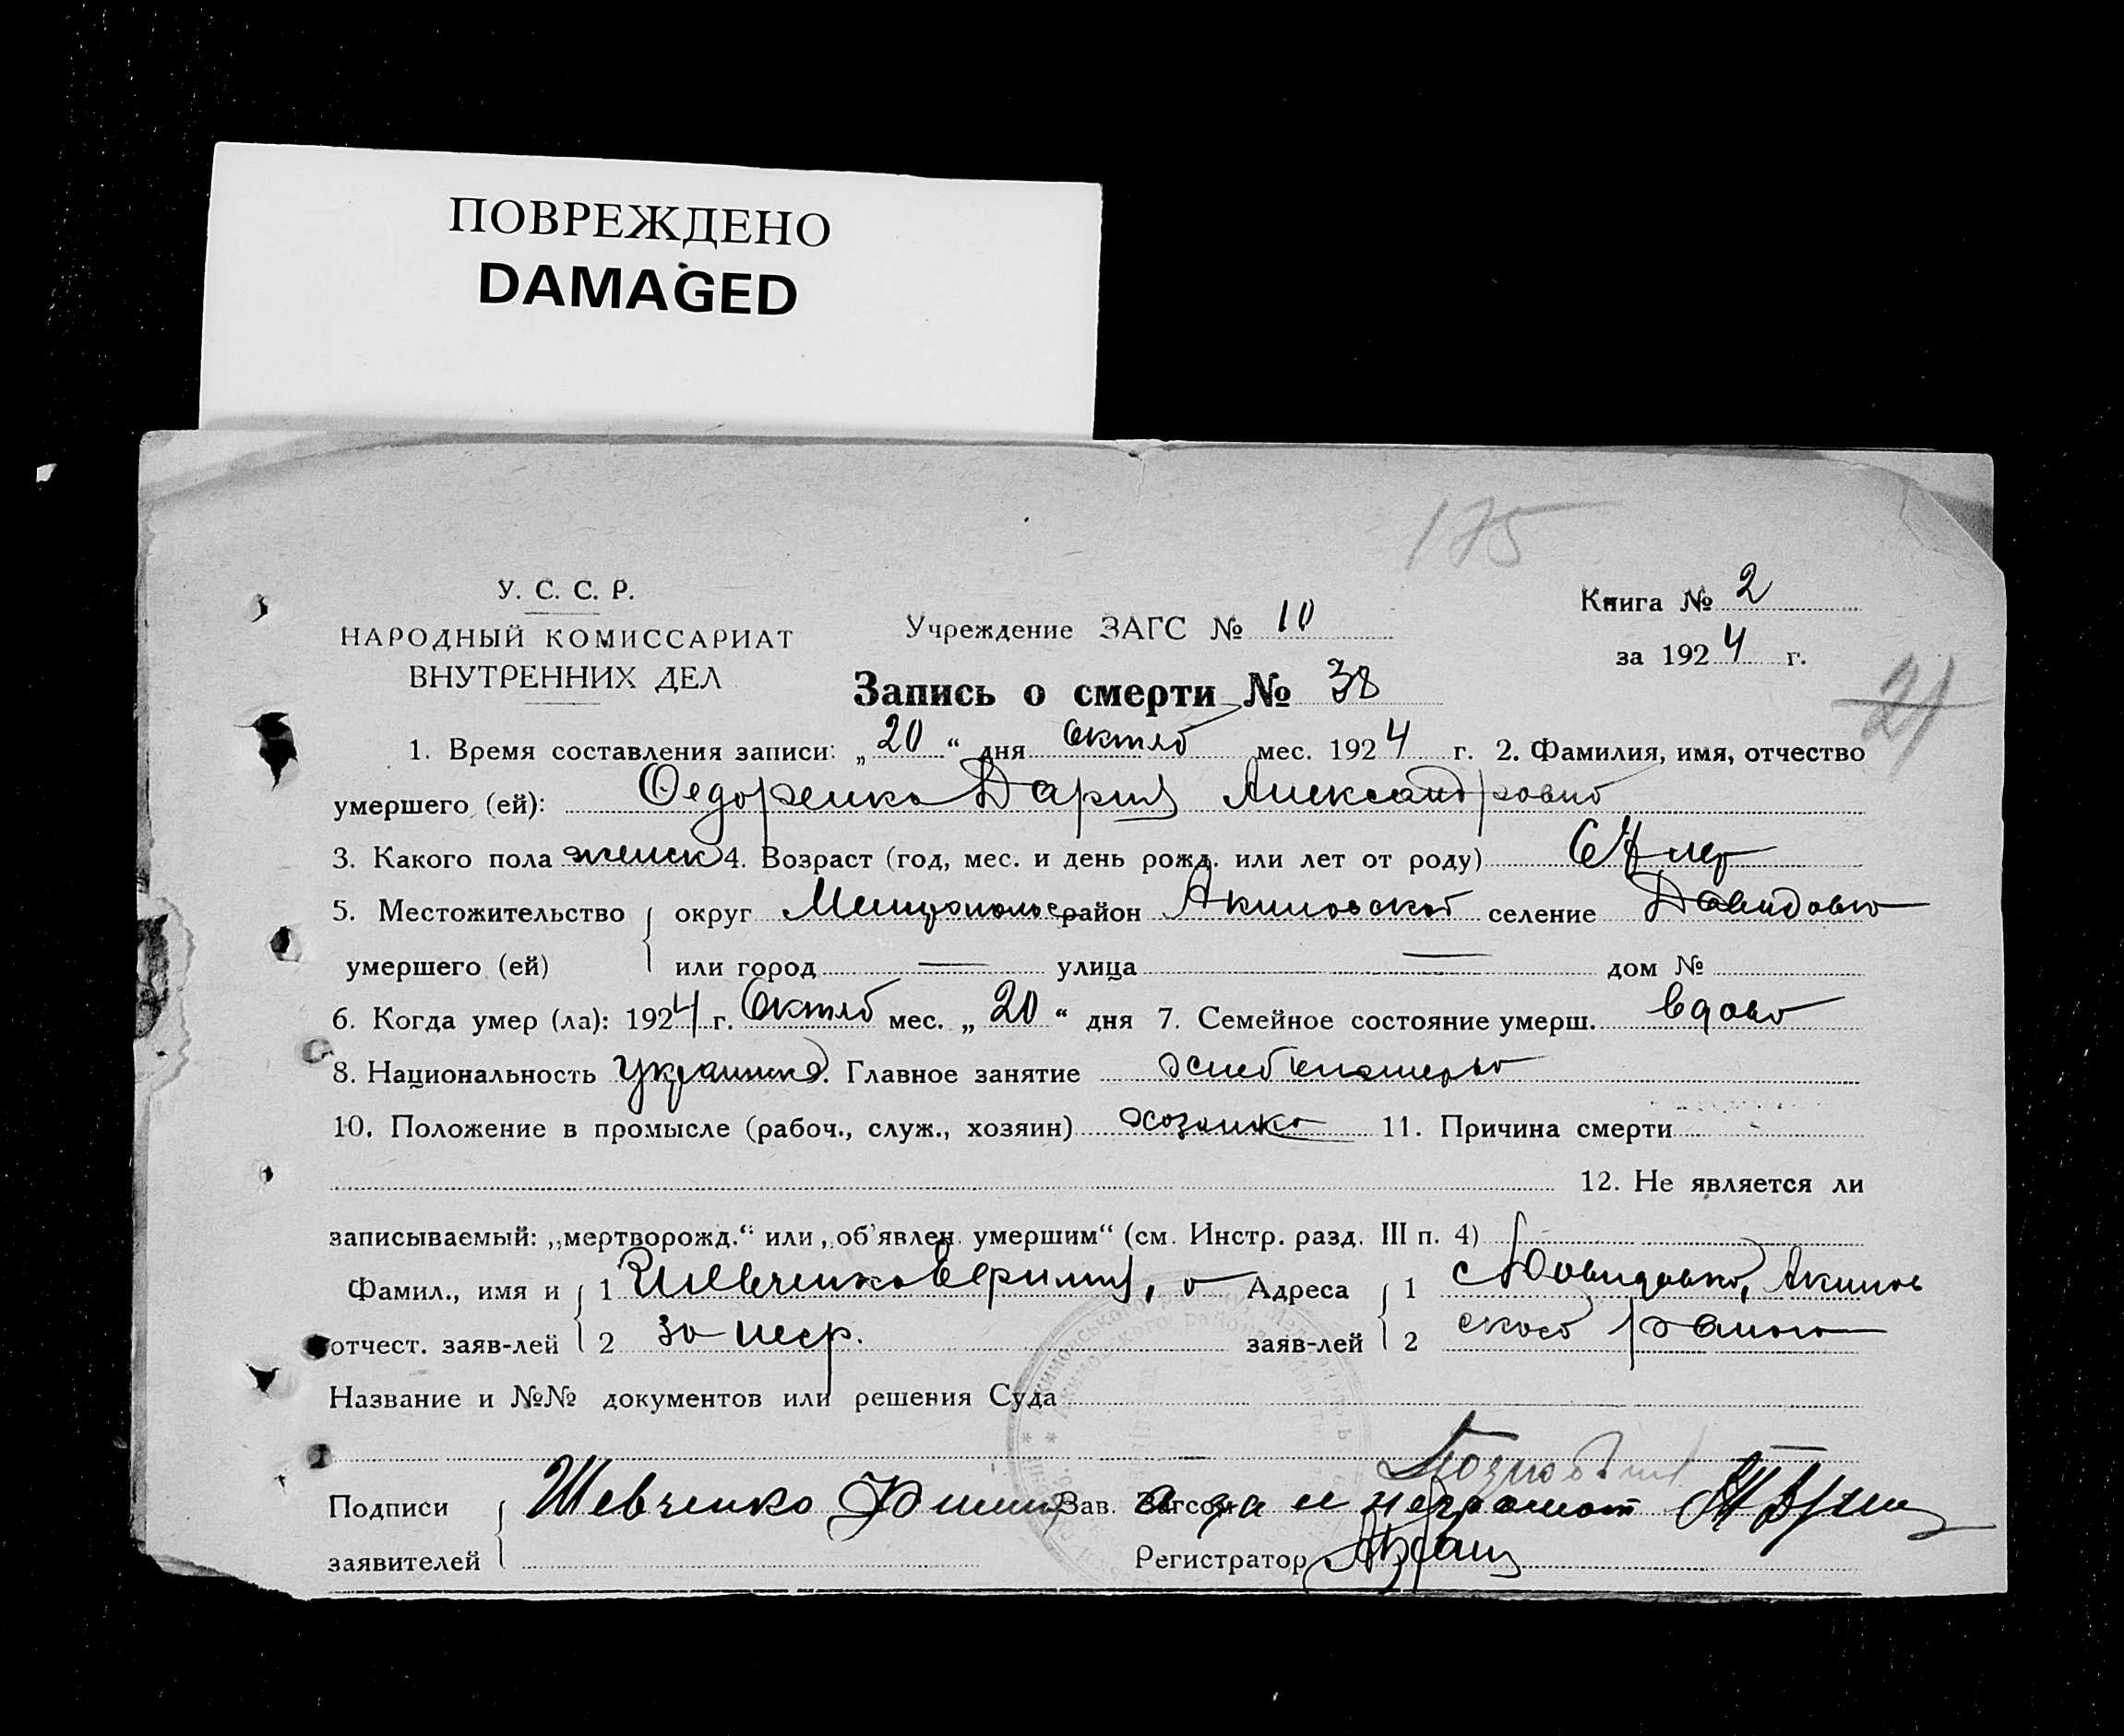 ПОВРЕЖДЕНО
DAMAGED
175
У. С. С. Р.
НАРОДНЫЙ КОМИССАРИАТ
ВНУТРЕННИХ ДЕЛ
Учреждение ЗАГС № 10
Книга № 2
за 1924 г.
21
Запись о смерти № 38
1. Время составления записи: „20“ дня Октяб мес. 1924 г. 2. Фамилия, имя, отчество
умершего (ей): Федоренко Дария Александровна
3. Какого пола женск 4. Возраст (год, мес. и день рожд. или лет от роду) лет
5. Местожительство округ Мелитопольс район Акимовской селение Давидовка
умершего (ей) или город — улица — дом №
6. Когда умер (ла): 1924 г. Октяб мес. „20“ дня 7. Семейное состояние умерш. вдова
8. Национальность украинка. Главное занятие
10. Положение в промысле (рабоч., служ., хозяин) хозяйка 11. Причина смерти
12. Не является ли
записываемый: „мертворожд.“ или „об'явлен умершим“ (см. Инстр. разд. III п. 4)
Фамил., имя и 1 Шевченко , а Адреса 1 с Давидовка, Акимов
отчест. заяв-лей 2 за негр. заяв-лей 2 ского района
Название и №№ документов или решения Суда
Подписи Шевченко Зав. Загсом а за и неграмот
заявителей Регистратор